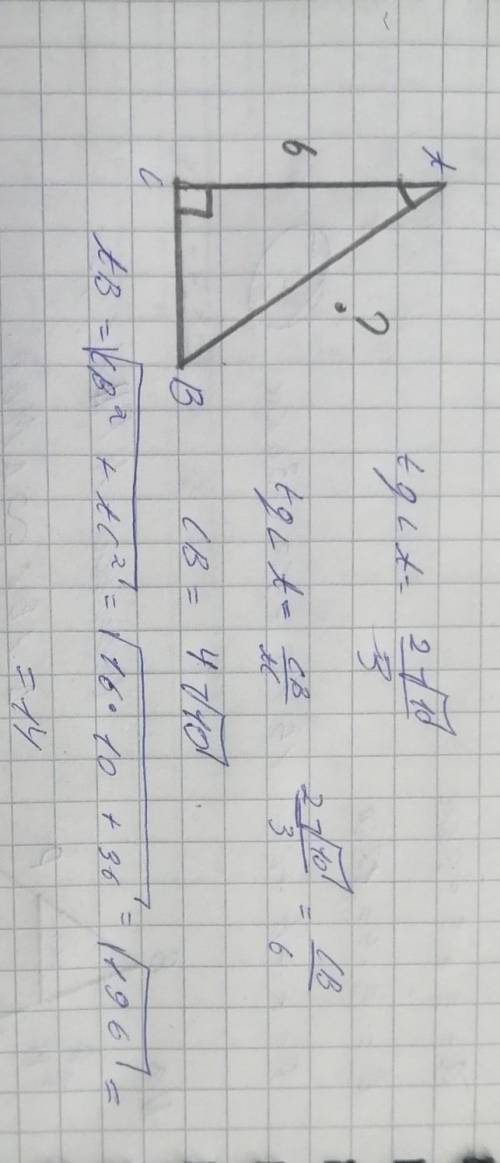 A
6
?
C
B
tg∠A = 2√10/3
tg∠A = CB/AC   2√10/3 = CB/6
CB = 4√10
AB = √CB² + AC² = √16·10 + 36 = √196 =
= 14